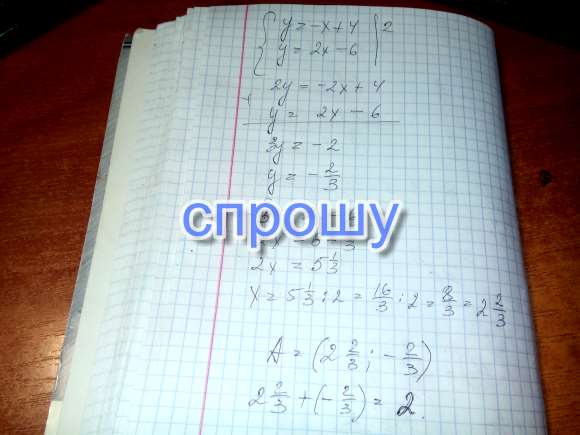 { y = -x + 4 | 2
y = 2x - 6
2y = -2x + 4
+
y = 2x - 6
3y = -2
y = - 2/3
спрошу
2x = 5 1/3
x = 5 1/3 : 2 = 16/3 : 2 = 8/3 = 2 2/3
A = (2 2/3 ; - 2/3)
2 2/3 + (- 2/3) = 2.